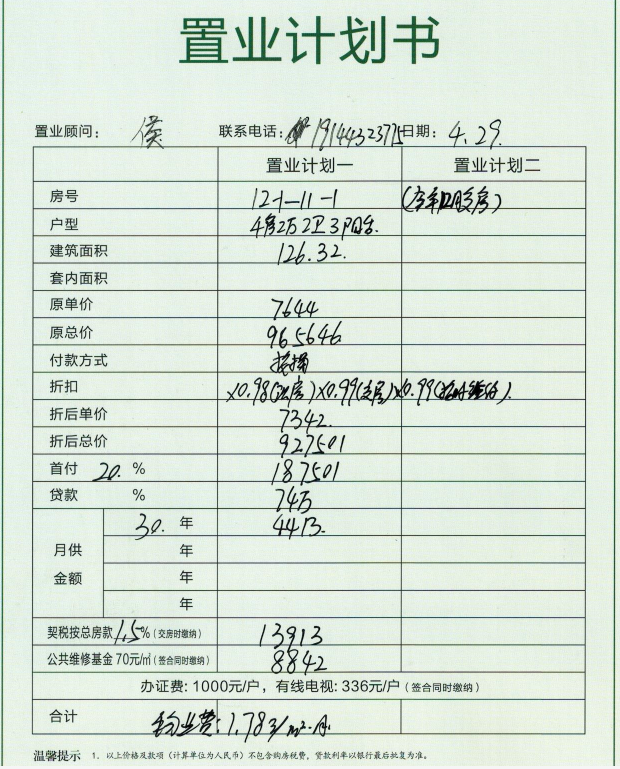 置业计划书
置业顾问: 侯 联系电话: 19144323775 日期: 4.29.
置业计划一 置业计划二
房号 12-1-11-1
户型 4房2厅2卫3阳台.
建筑面积 126.32.
套内面积
原单价 7644
原总价 965646
付款方式 按揭
折扣 ×0.98( 房)×0.99( 房)×0.99(按时签约).
折后单价 7342.
折后总价 927501
首付 20. % 187501
贷款 % 74万
月供金额
30. 年 4413.
年
年
年
契税按总房款 1.5% (交房时缴纳) 13913
公共维修基金 70元/㎡ (签合同时缴纳) 8842
办证费: 1000元/户, 有线电视: 336元/户 (签合同时缴纳)
合计 物业费: 1.783/m²·月
温馨提示 1. 以上价格及款项 (计算单位为人民币) 不包含购房税费, 贷款利率以银行最后批复为准。